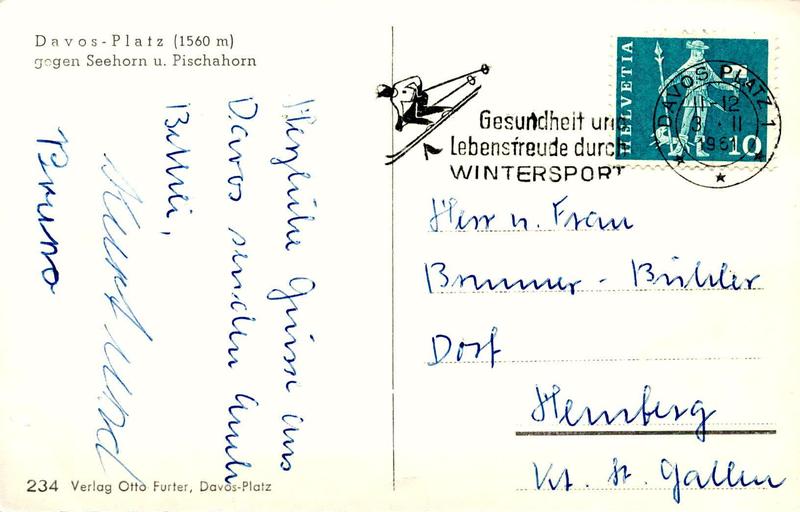 Davos-Platz (1560 m)
gegen Seehorn u. Pischahorn
Herzliche Grüsse aus
Davos senden Euch
Kurt und
Bruno
234 Verlag Otto Furter, Davos-Platz
Gesundheit und
Lebensfreude durch
WINTERSPORT
HELVETIA
10
DAVOS PLATZ 1
11-12
3. II
1961
Herr u. Frau
Brunner - Bühler
Dorf
Hemberg
Kt. St. Gallen